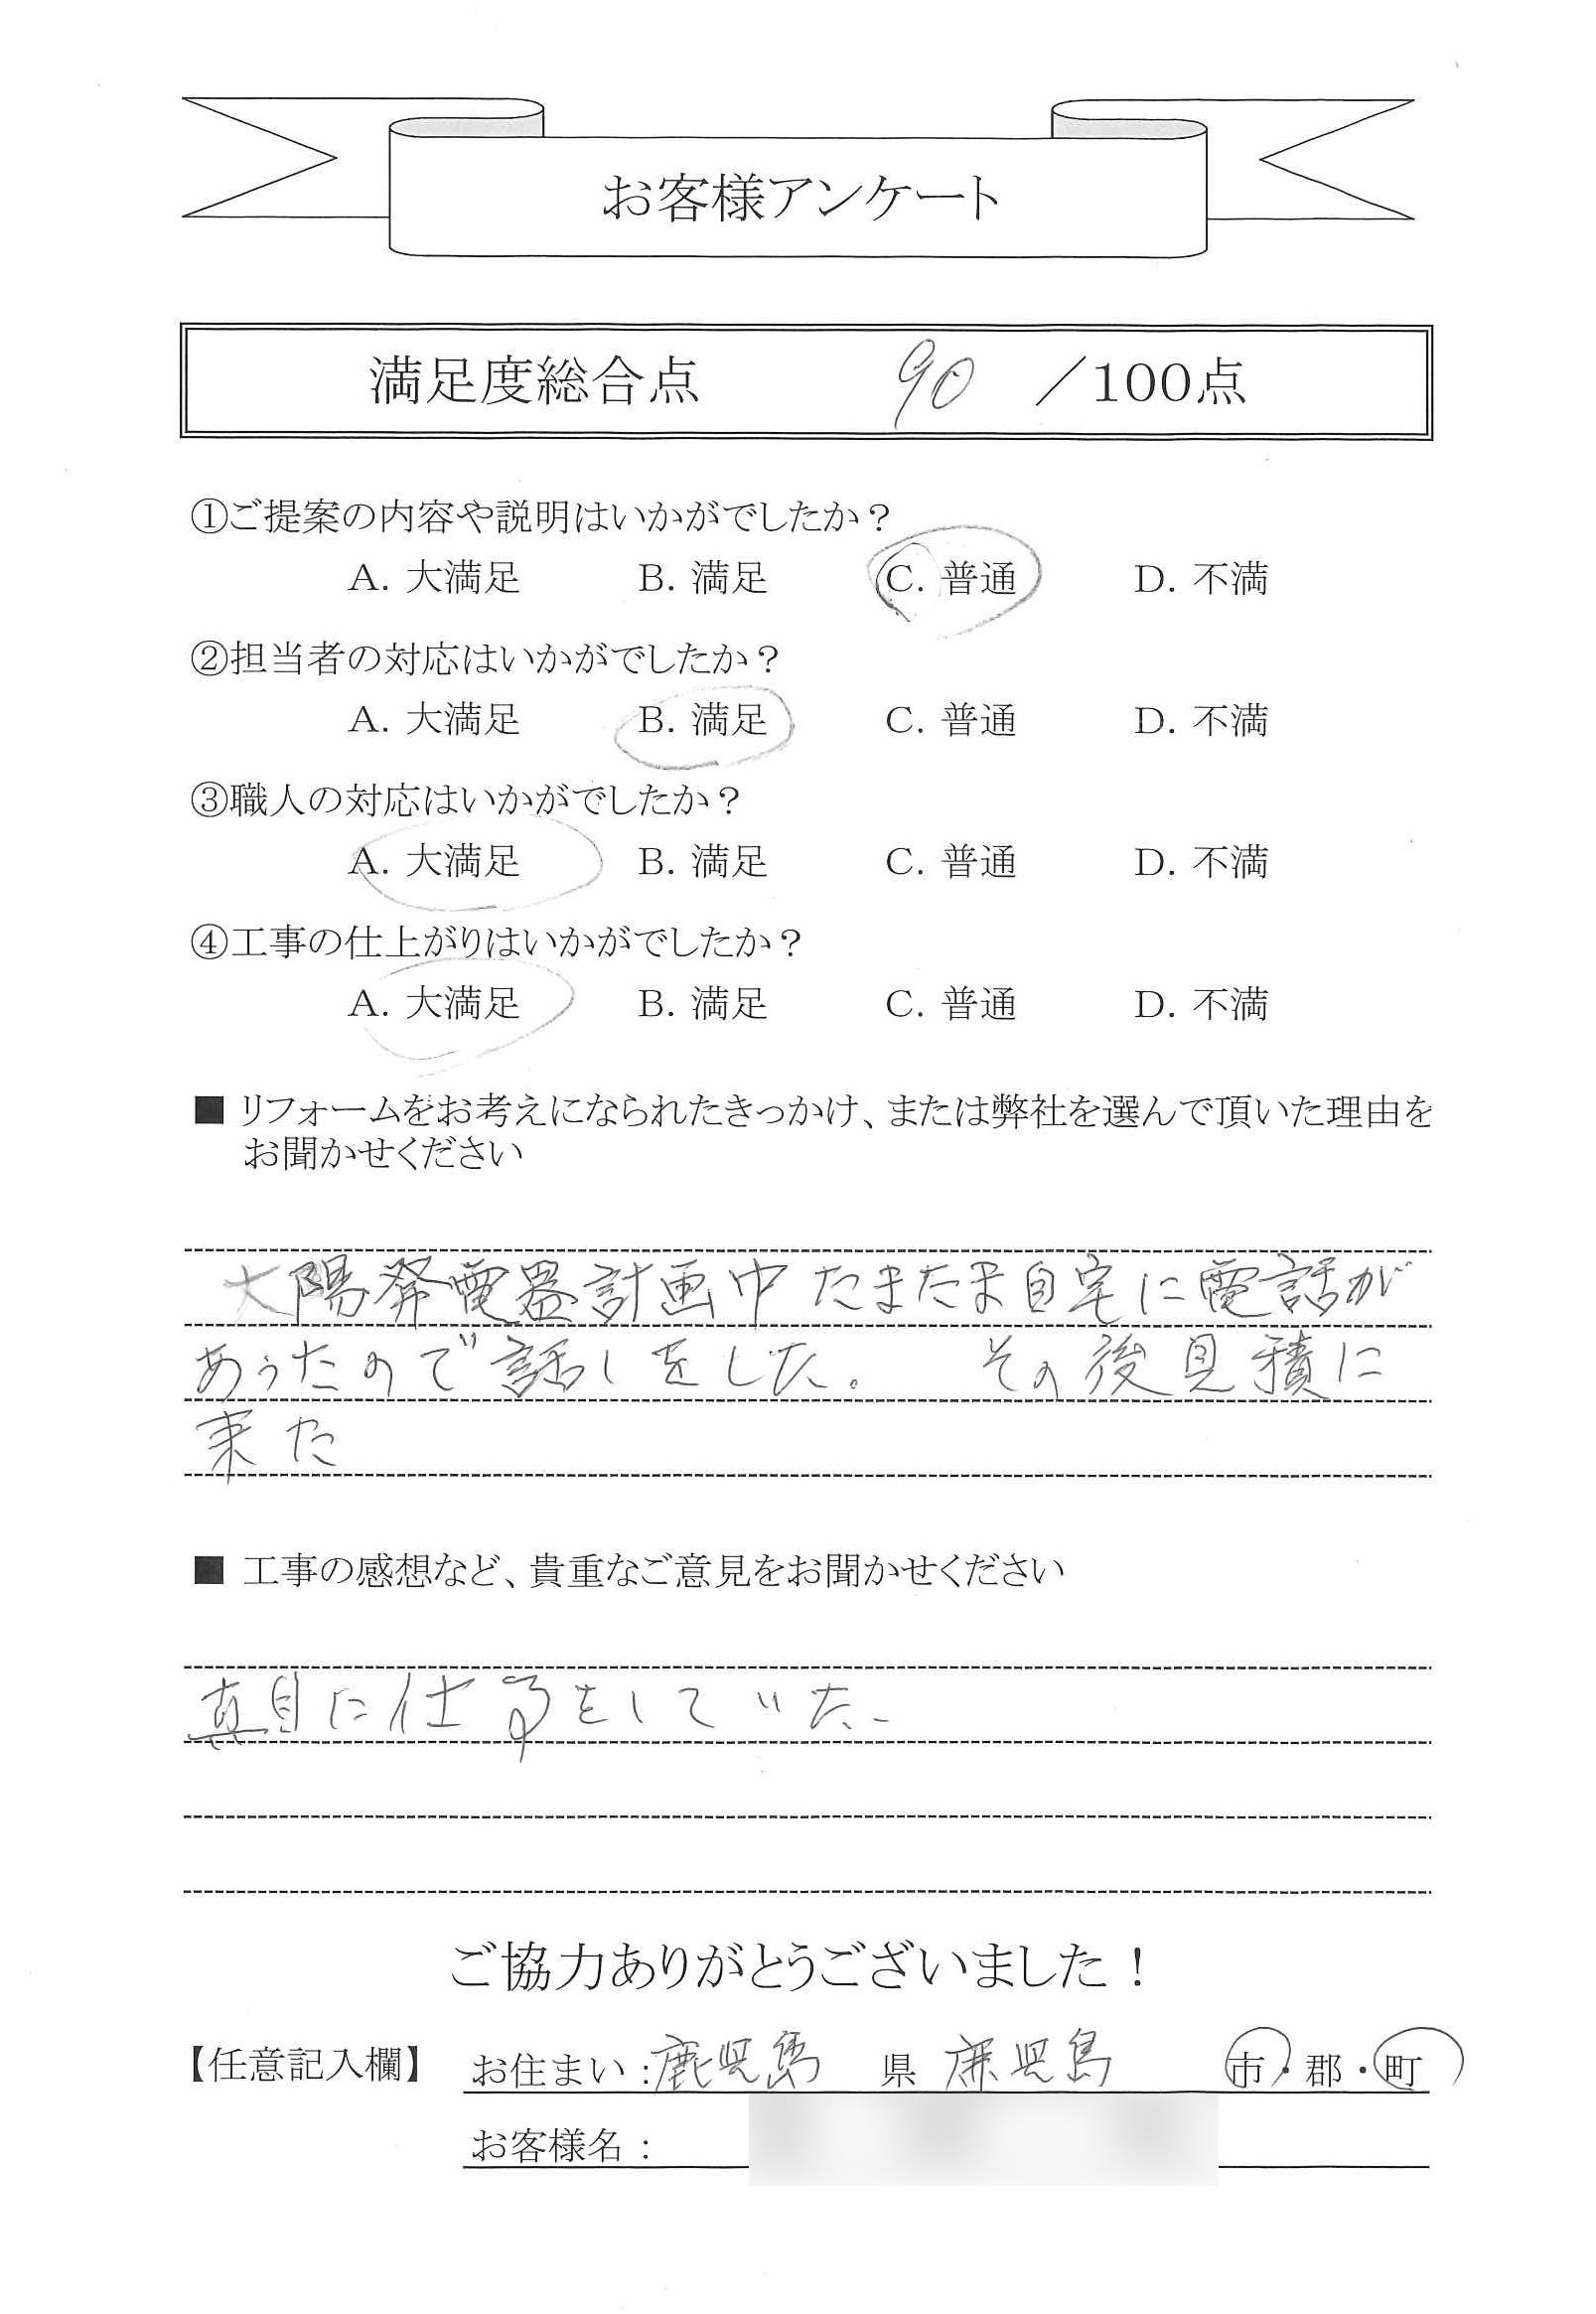 お客様アンケート
満足度総合点 90 ／100点
①ご提案の内容や説明はいかがでしたか？
A. 大満足 B. 満足 C. 普通 D. 不満
②担当者の対応はいかがでしたか？
A. 大満足 B. 満足 C. 普通 D. 不満
③職人の対応はいかがでしたか？
A. 大満足 B. 満足 C. 普通 D. 不満
④工事の仕上がりはいかがでしたか？
A. 大満足 B. 満足 C. 普通 D. 不満
■ リフォームをお考えになられたきっかけ、または弊社を選んで頂いた理由を
お聞かせください
大陽発電器計画中たまたま自宅に電話が
あったので話しをした。 その後見積に
来た
■ 工事の感想など、貴重なご意見をお聞かせください
真目に仕事をしていた
ご協力ありがとうございました！
【任意記入欄】 お住まい：鹿児島 県 鹿児島 市・郡・町
お客様名：